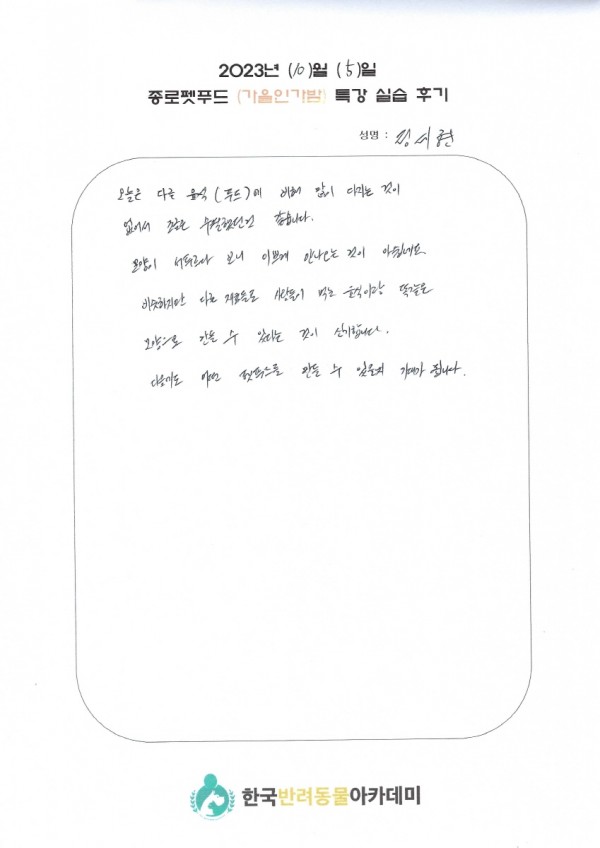 2023년 (10)월 (5)일
종로펫푸드 (가을인가밤) 특강 실습 후기
성명 : 김시현
오늘은 다른 음식(푸드)에 비해 많이 다지는 것이
없어서 조금은 수월했던것 같습니다.
모양이 서투르다 보니 이쁘게 안나오는 것이 아쉽네요.
비슷하지만 다른 재료들로 사람들이 먹는 음식이랑 똑같은
모양으로 만들 수 있다는 것이 신기합니다.
다음에도 어떤 펫푸드를 만들 수 있을지 기대가 됩니다.
한국반려동물아카데미